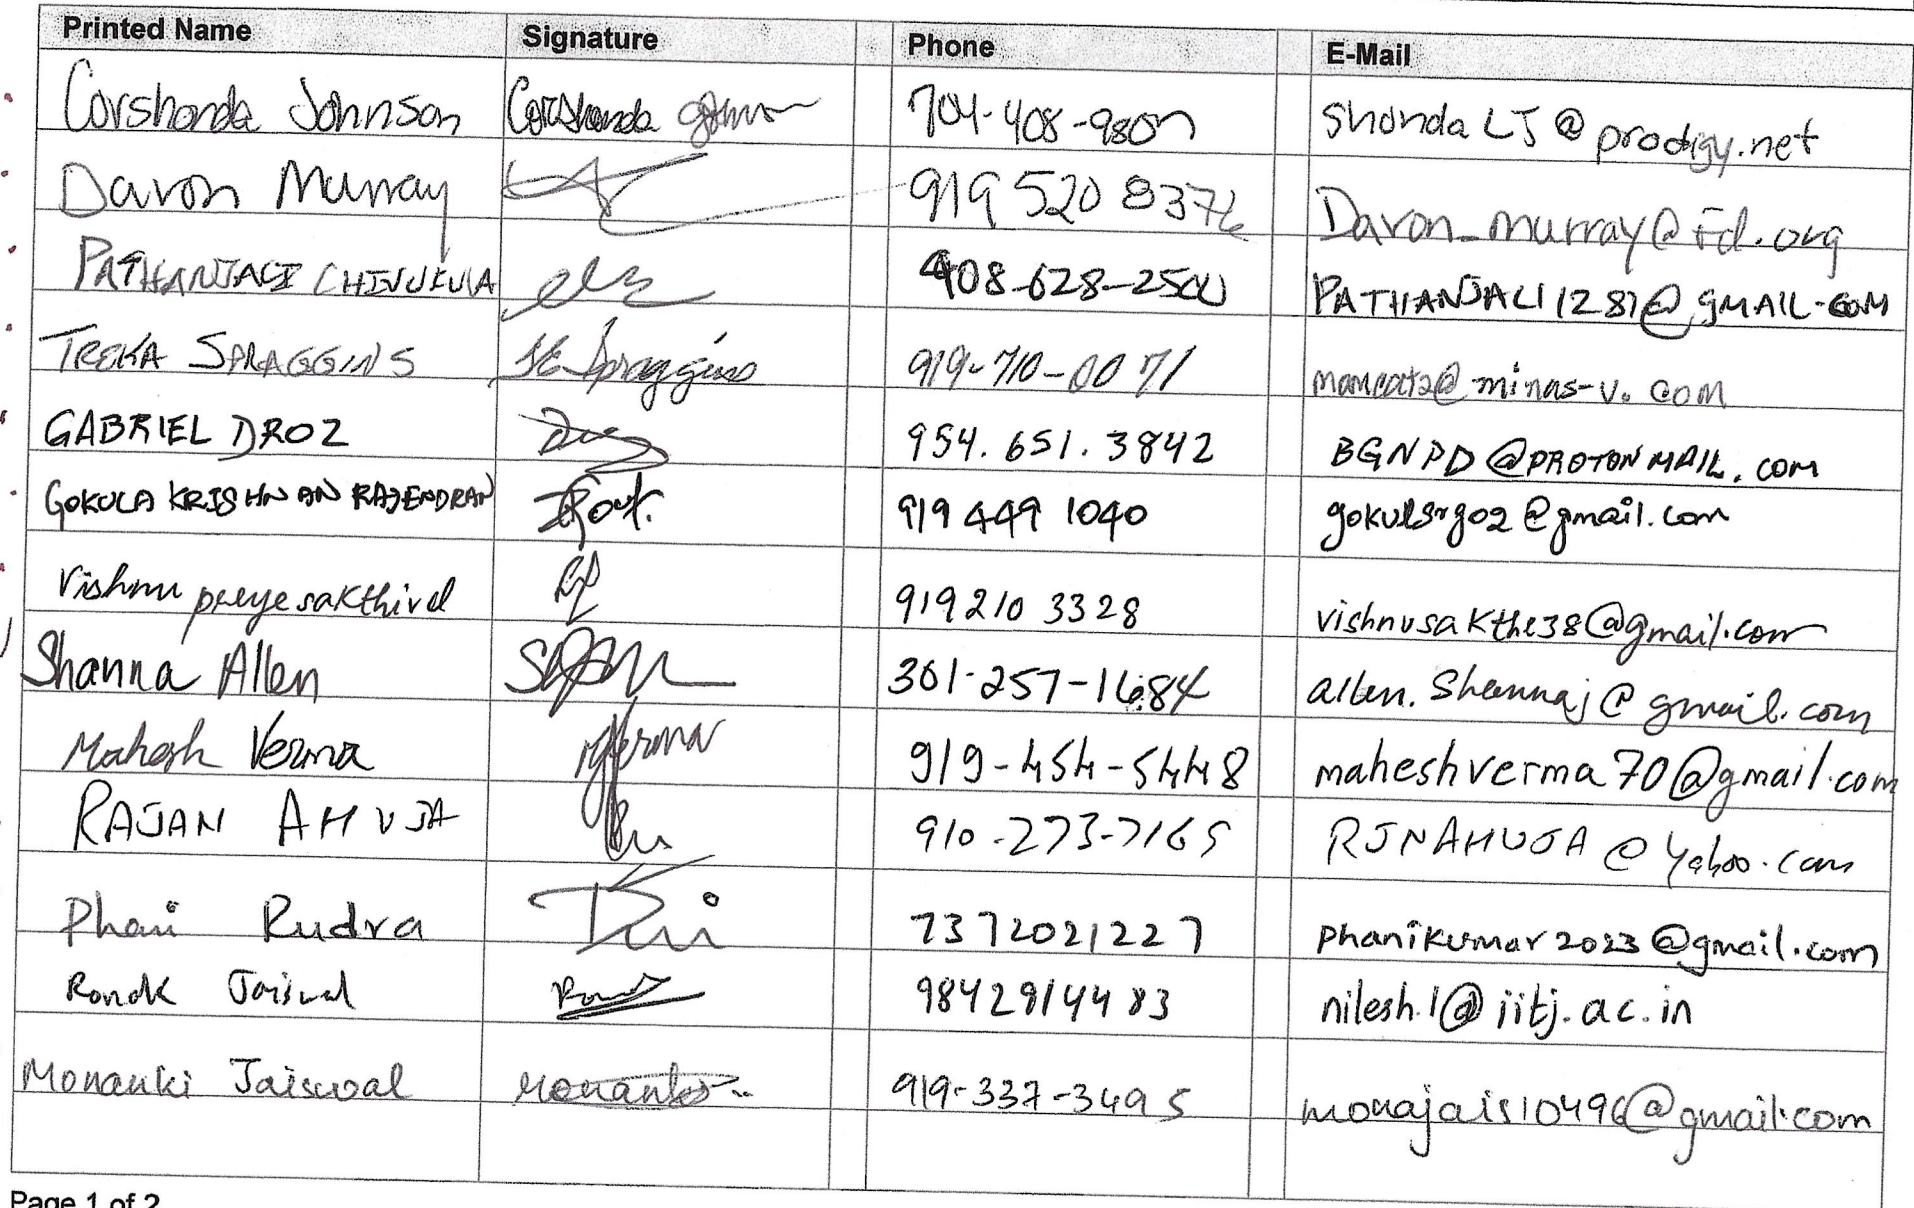 Printed Name Signature Phone E-Mail
Corshonda Johnson Corshonda 704-408-9807 shondaLJ@prodigy.net
Davon Murray 919 520 8376 Davon_murray@fd.org
PATHANJALI CHIVUKULA 408-628-2500 PATHANJALI1287@gMAIL.COM
TREKA SPRAGGINS Spraggins 919-710-0071
GABRIEL DROZ 954.651.3842 BGNPD@PROTONMAIL.COM
GOKULA KRISHNAN RAJENDRAN 919 449 1040
Vishnu preyesakthivel 919210 3328 vishnusakthe38@gmail.com
Shanna Allen 301-257-1684 allen.Shannaj@gmail.com
Mahesh Verma MVerma 919-454-5448 maheshverma70@gmail.com
RAJAN AHUJA 910-273-7165 RJNAHUJA@Yahoo.com
Phani Rudra 7372021227 phanikumar2023@gmail.com
Ronak Jaiswal 9842914483 nilesh.1@iitj.ac.in
Monanki Jaiswal Monanki 919-337-3495 monajais10496@gmail.com
Page 1 of 2